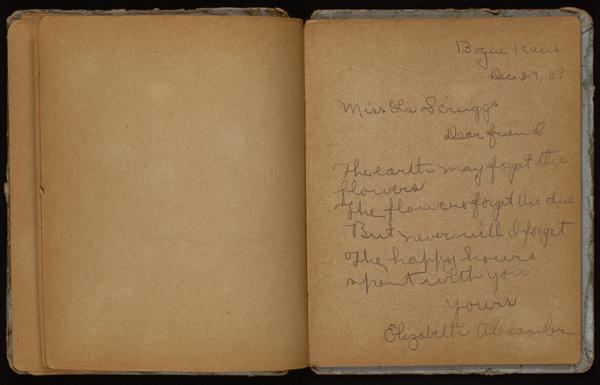 Bogue Kans
Dec 29, 09
Miss Ola Scruggs
Dear friend
The earth may forget the
flowers
The flowers forget the due
But never will I forget
The happy hours
spent with you
Yours
Elizabeth Alexander